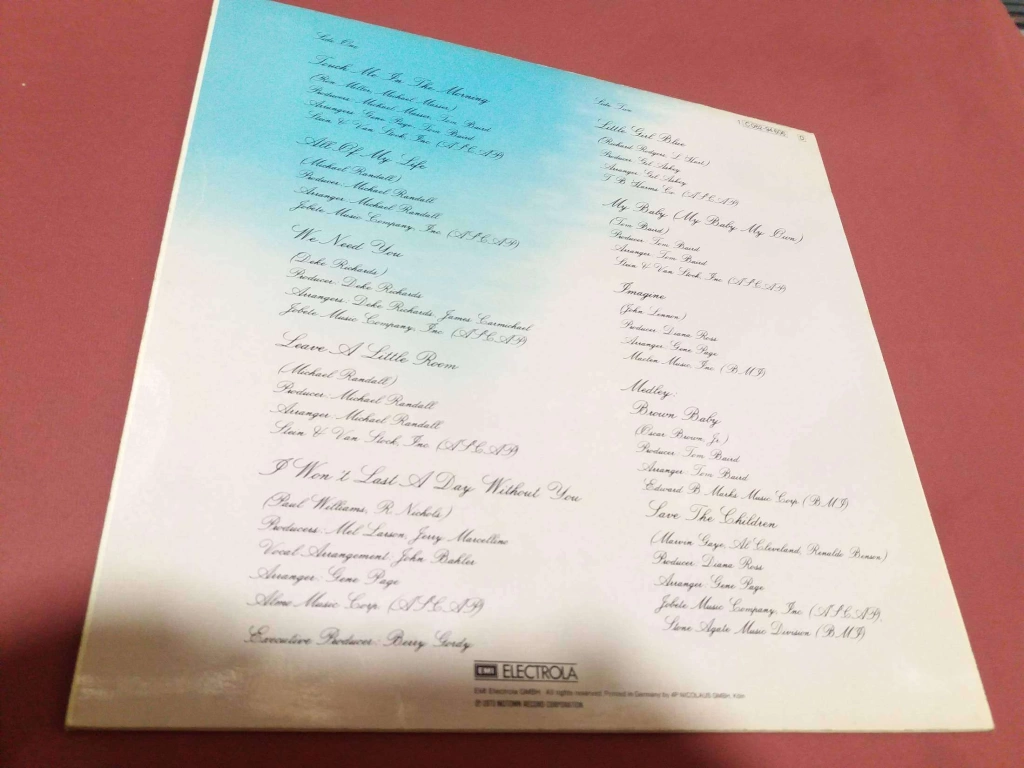 Side One
Touch Me In The Morning
(Ron Miller, Michael Masser)
Producers: Michael Masser, Tom Baird
Arrangers: Gene Page, Tom Baird
Stein & Van Stock, Inc. (ASCAP)
All Of My Life
(Michael Randall)
Producer: Michael Randall
Arranger: Michael Randall
Jobete Music Company, Inc. (ASCAP)
We Need You
(Deke Richards)
Producer: Deke Richards
Arrangers: Deke Richards, James Carmichael
Jobete Music Company, Inc. (ASCAP)
Leave A Little Room
(Michael Randall)
Producer: Michael Randall
Arranger: Michael Randall
Stein & Van Stock, Inc. (ASCAP)
I Won't Last A Day Without You
(Paul Williams, R. Nichols)
Producers: Mel Larson, Jerry Marcellino
Vocal Arrangement: John Bahler
Arranger: Gene Page
Almo Music Corp. (ASCAP)
Executive Producer: Berry Gordy
Side Two
Little Girl Blue
(Richard Rodgers, L. Hart)
Producer: Gil Askey
Arranger: Gil Askey
T. B. Harms Co. (ASCAP)
My Baby (My Baby My Own)
(Tom Baird)
Producer: Tom Baird
Arranger: Tom Baird
Stein & Van Stock, Inc. (ASCAP)
Imagine
(John Lennon)
Producer: Diana Ross
Arranger: Gene Page
Maclen Music, Inc. (BMI)
Medley:
Brown Baby
(Oscar Brown, Jr.)
Producer: Tom Baird
Arranger: Tom Baird
Edward B. Marks Music Corp. (BMI)
Save The Children
(Marvin Gaye, Al Cleveland, Renaldo Benson)
Producer: Diana Ross
Arranger: Gene Page
Jobete Music Company, Inc. (ASCAP),
Stone Agate Music Division (BMI)
EMI ELECTROLA
EMI Electrola GMBH · All rights reserved. Printed in Germany by 4P NICOLAUS GMBH, Köln
Ⓟ 1973 MOTOWN RECORD CORPORATION